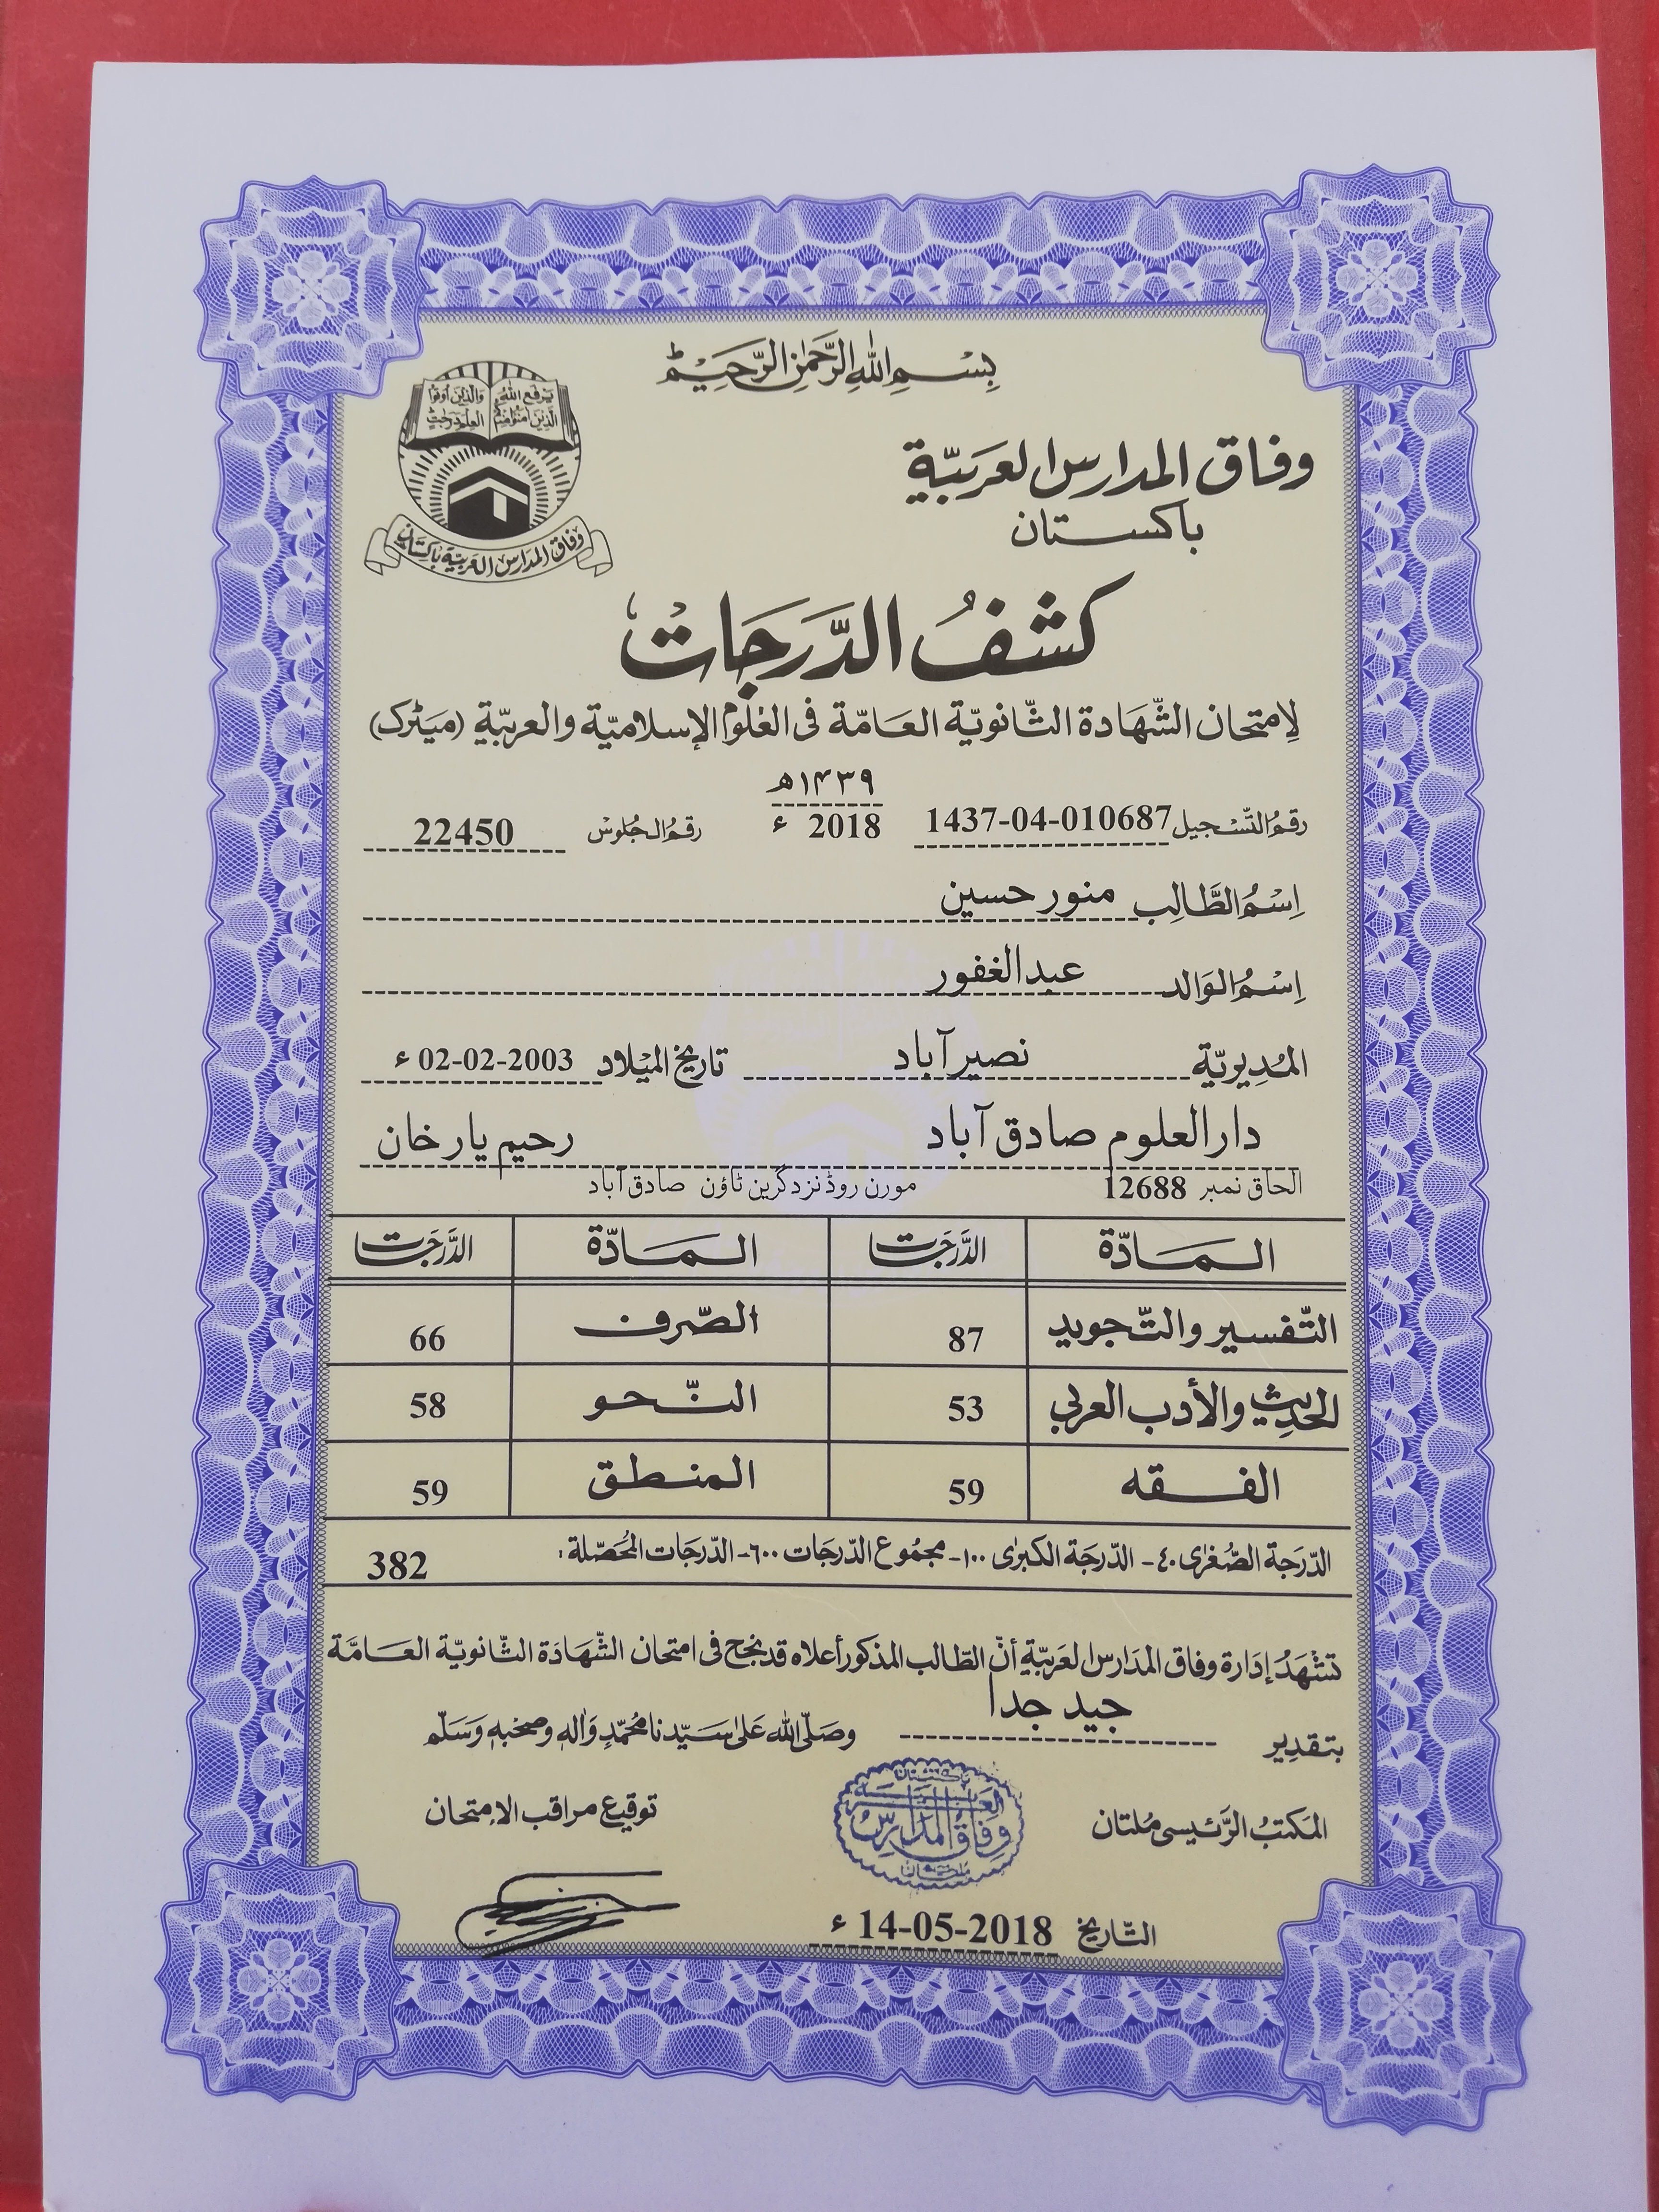 بِسْمِ اللهِ الرَّحْمٰنِ الرَّحِيْمِ
يرفع الله الذين آمنوا منكم
والذين أوتوا العلم درجٰت
وفاق المدارس العربيّة باكستان
وفاق المدارس العربيّة
باكستان
كشفُ الدَّرَجَات
لِامتحان الشّهَادة الثّانويّة العَامّة فى العُلوم الإسلاميّة والعربيّة (ميٹرک)
١٤٣٩هـ
رقمُ التّسجيل 1437-04-010687 2018 ء رقمُ الجُلوس 22450
اِسْمُ الطَّالِب منور حسين
اِسْمُ الوَالد عبدالغفور
المُدِيريّة نصیر آباد تاريخ الميْلاد 02-02-2003 ء
دارالعلوم صادق آباد رحیم یار خان
الحاق نمبر 12688 مورن روڈ نزد گرین ٹاؤن صادق آباد
المَادّة الدَّرَجَات المَادّة الدَّرَجَات
التّفسير والتّجويد 87 الصّرف 66
الحَدِيث والأدب العربي 53 النّحو 58
الفقه 59 المنطق 59
الدّرَجة الصّغرٰى ٤٠- الدّرجَة الكبرٰى ١٠٠- مجمُوع الدّرجَات ٦٠٠- الدّرجَات المُحَصّلة: 382
تشْهَدُ إدَارة وفاق المدَارس العَربيّة أنّ الطّالب المذكور أعلاه قد نجح فى امتحان الشّهَادَة الثّانويّة العَامَّة
بتقدِير جيد جدا وصَلّى الله عَلىٰ سَيّدنا مُحَمّدٍ وَاٰلهٖ وصَحْبهٖ وَسَلّم
المَكتبُ الرَّئيسى مُلتان توقيع مراقب الامتحان
باكستان
العربية
وفاق المدارس
ملتان
التّاريخ 14-05-2018 ء